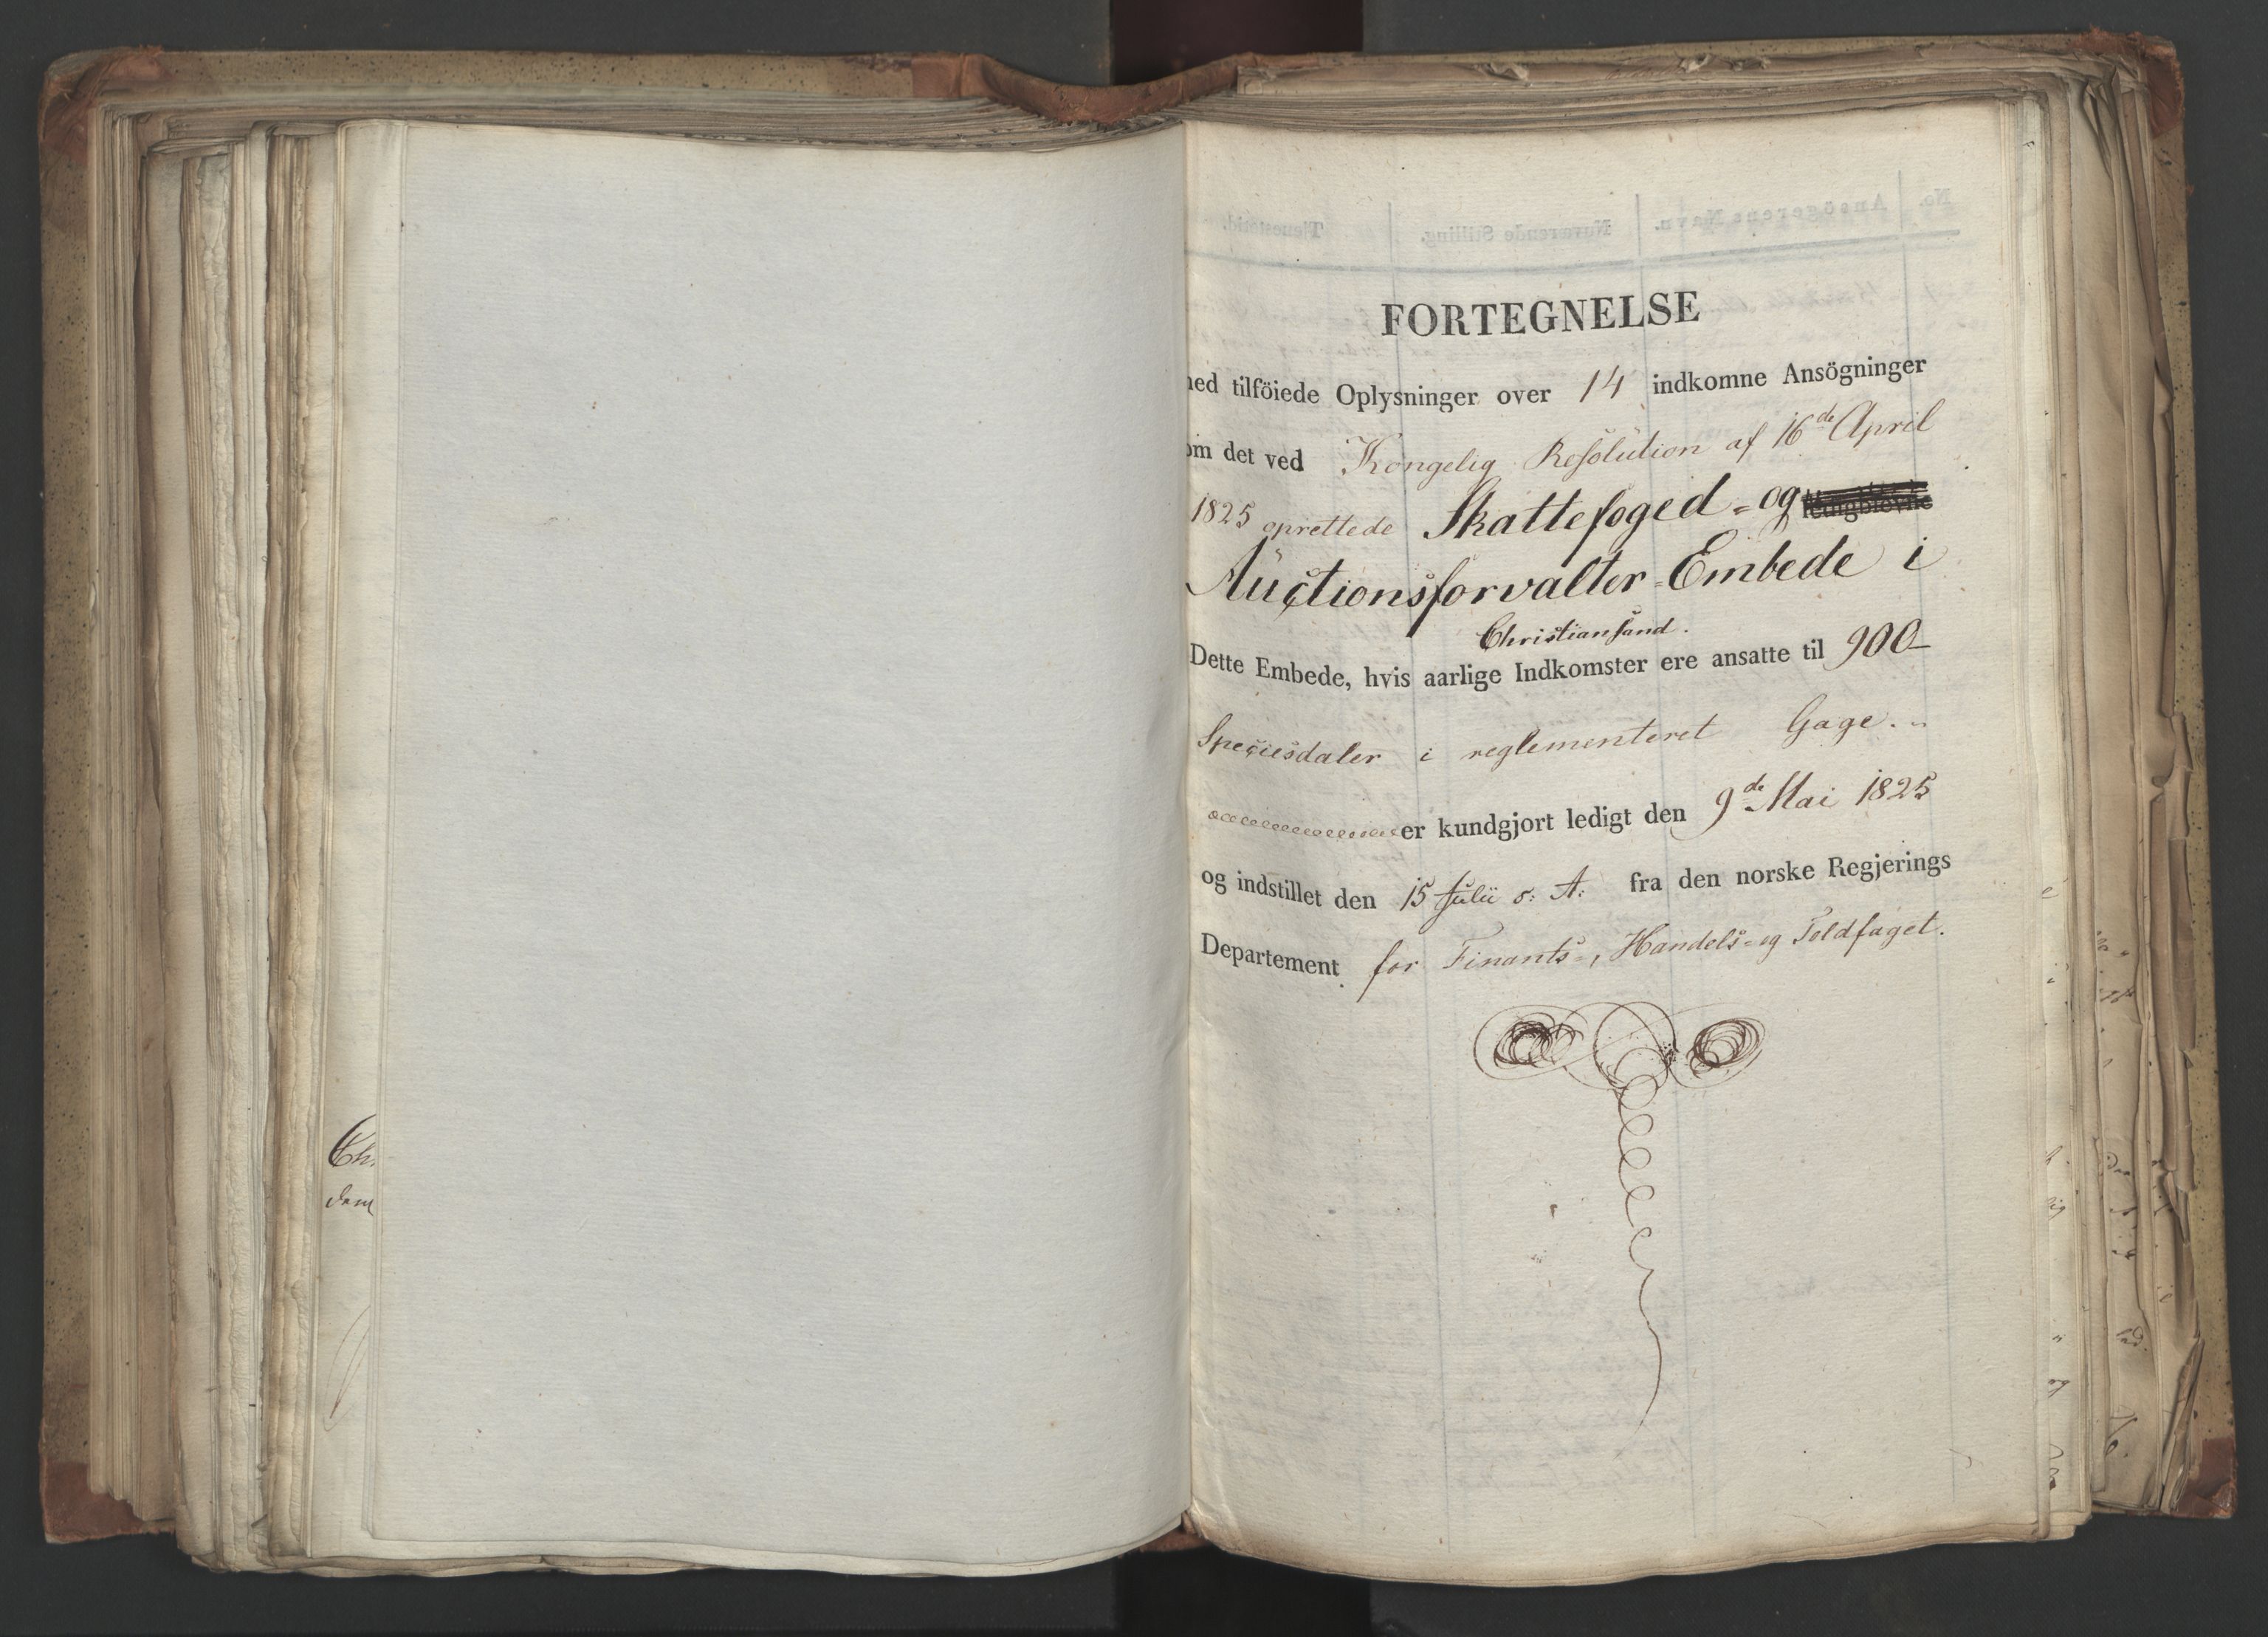 FORTEGNELSE
med tilföiede Oplysninger over 14 indkomne Ansögninger
om det ved Kongelig Resolution af 16de April
1825 oprettede Skattefoged- og ledigblevne
Auctionsforvalter-Embede i
Christiansand.
Dette Embede, hvis aarlige Indkomster ere ansatte til 900
Speciesdaler i reglementeret Gage.
er kundgjort ledigt den 9de Mai 1825
og indstillet den 15 Julii s: A: fra den norske Regjerings
Departement for Finants-, Handels- og Toldfaget.
No. Ansögerens Navn. Nuværende Stilling. Tjenestetid.
Ch.
dem